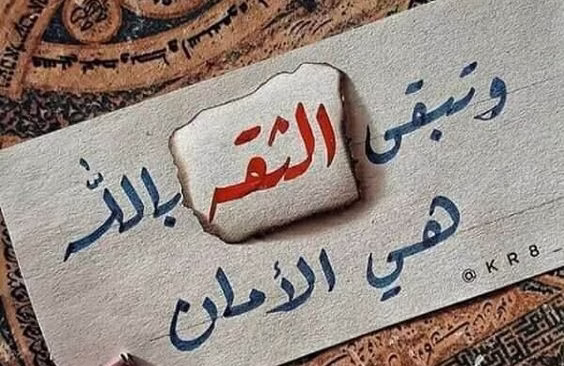 وتبقى الثقة بالله
هي الأمان
@KR8_